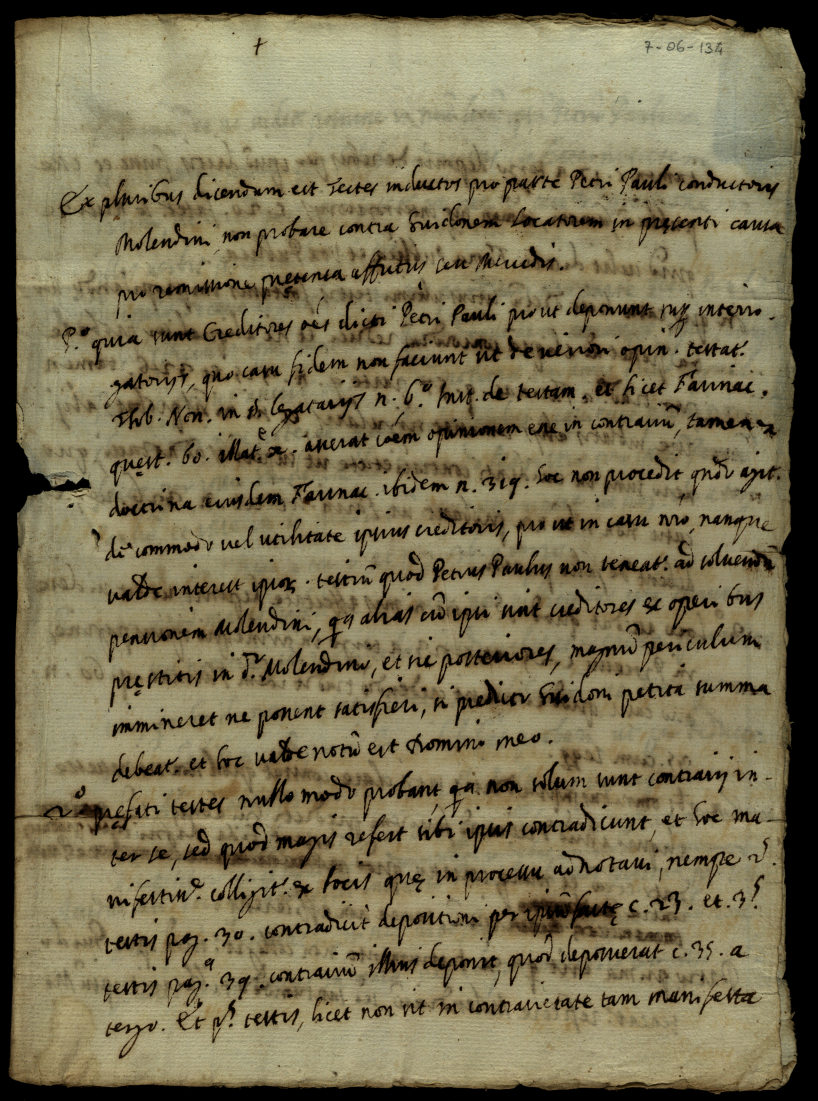 +
7-06-134
Ex pluribus dicendum est testes inductos pro parte Petri Pauli conductoris
Molendini, non probare contra Guidonem Locatorem in pręsenti causa
pro remissione pretensa affictus seu Mercedis.
P.º quia sunt Creditores oēs dicti Petri Pauli prout deponunt sup interro-
gatorijs, quo casu fidem non faciunt ut de veriori opin. testat.
n. 6.º Inst. de testam. et licet Farinac.
quęst. 60. illat.º asserat eōem opinionem esse in contrariū, tamen ex
doctrina eiusdem Farinac. ibidem n. 319. hoc non procedit qndo agit.
de commodo vel utilitate ipsius creditoris, prout in casu nrō, nanque
valde interest ipsor. testiū quod Petrus Paulus non teneat. ad solvendū
pensionem Molendini, qa alias cū ipsi sint creditores ex operibus
pręstitis in d.º Molendino, et sic posteriores, magnū periculum
immineret ne possent satisfieri, si predicto Guidoni petita summa
debeat. et hoc valde notū est Domino meo.
2º pręfati testes nullo modo probant, qa non solum sunt contrarij in-
ter se, sed quod magis refert sibi ipsis contradicunt, et hoc ma-
nifestiu.º colligit. ex locis quę in processu adnotavi, nempe 2.s
testis pag. 30. contradicit depositioni per ipsum factę c. 23. et 3.s
testis pag.ª 39. contrariū illius deponit, quod deposuerat c. 35. a
tergo. Et p.s testis, licet non sit in contrarietate tam manifesta